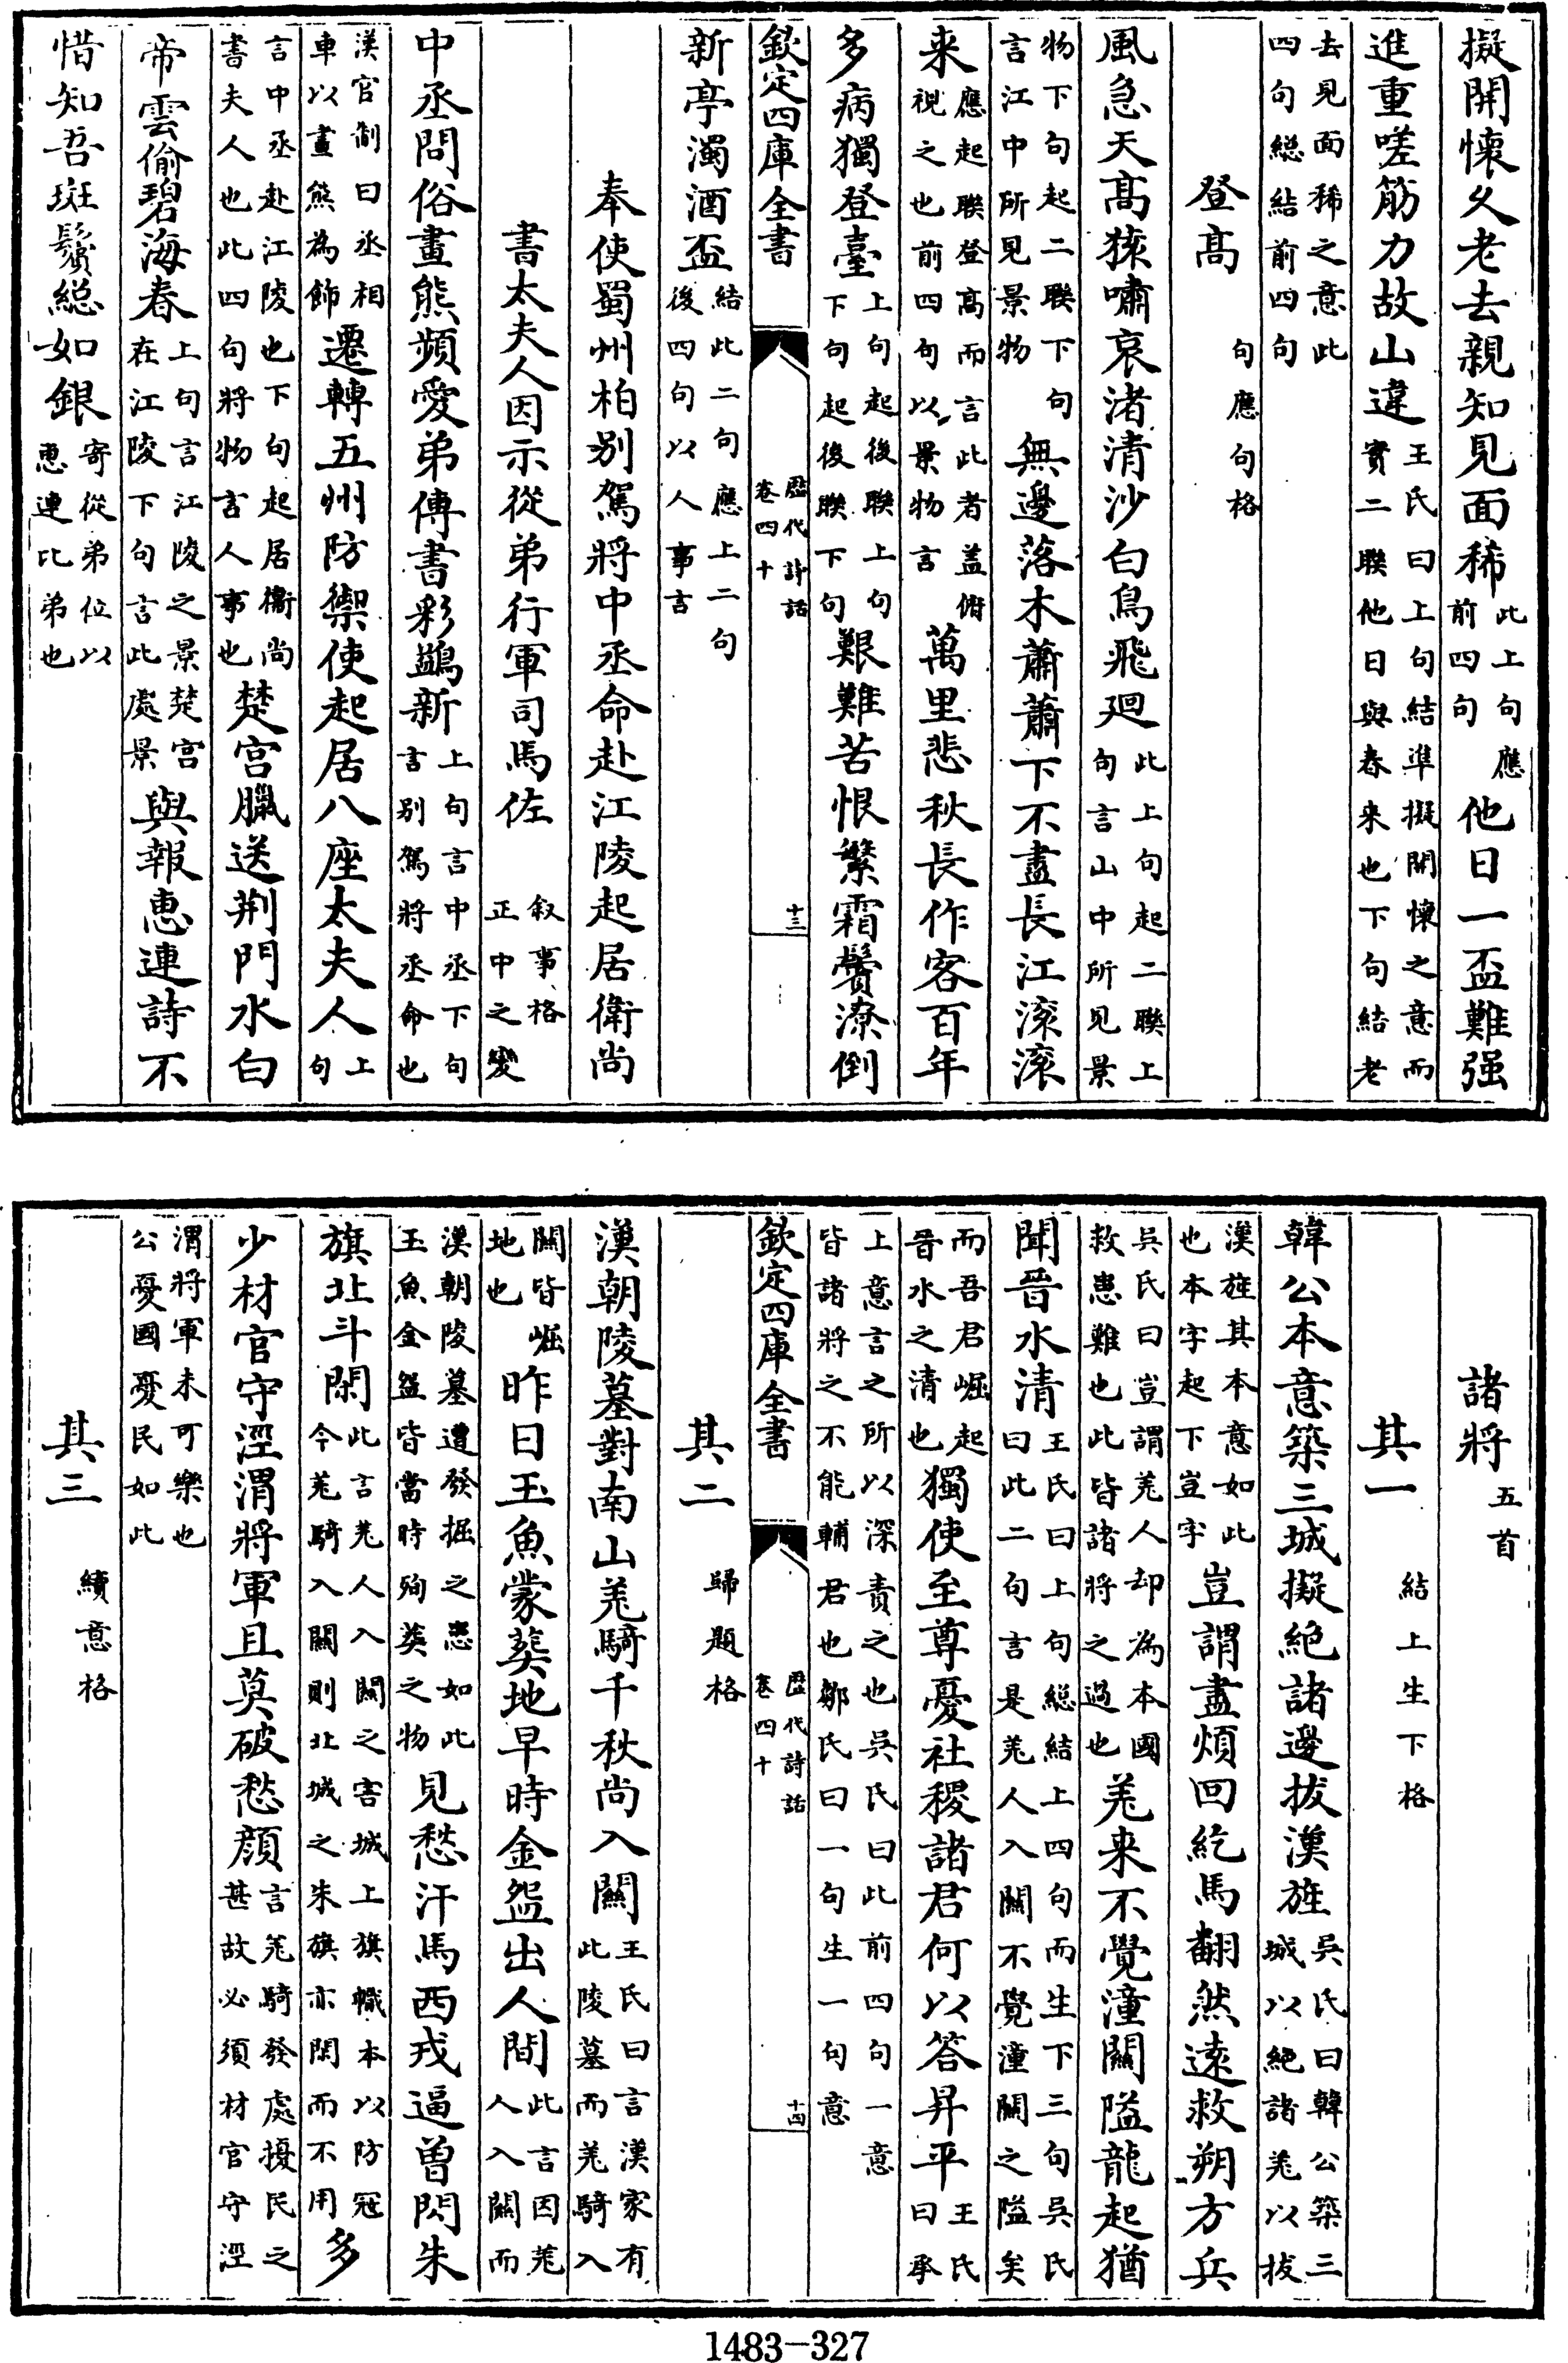 擬開懷久老去親知見面稀此上句應前四句他日一盃難强
進重嗟筋力故山違王氏曰上句結準擬開懷之意而實二聯他日與春来也下句結老
去見面稀之意此四句總結前四句
登髙句應句格
風急天髙猿嘯哀渚清沙白鳥飛廻此上句起二聯上句言山中所見景
物下句起二聯下句言江中所見景物無邊落木蕭蕭下不盡長江滚滚
来應起聯登髙而言此者盖俯視之也前四句以景物言萬里悲秋長作客百年
多病獨登臺上句起後聯上句下句起後聯下句艱難苦恨繁霜鬢潦倒
欽定四庫全書 歴代詩話卷四十 十三
新亭濁酒盃結此二句應上二句後四句以人事言
奉使蜀州柏别駕將中丞命赴江陵起居衛尚
書太夫人因示從弟行軍司馬佐叙事格正中之變
中丞問俗畫熊頻愛弟傳書彩鷁新上句言中丞下句言别駕將丞命也
漢官制曰丞相車以畫熊為飾遷轉五州防禦使起居八座太夫人上句
言中丞赴江陵也下句起居衛尚書夫人也此四句將物言人事也楚宫臘送荆門水白
帝雲偷碧海春上句言江陵之景楚宫在江陵下句言此處景與報惠連詩不
惜知吾斑鬢總如銀寄從弟位以恵連比弟也
諸將五首
其一結上生下格
韓公本意築三城擬絶諸邊拔漢旌吳氏曰韓公築三城以絶諸羌以拔
漢旌其本意如此也本字起下豈字豈謂盡煩回紇馬翻然逺救朔方兵
吳氏曰豈謂羌人却為本國救患難也此皆諸將之過也羌来不覺潼闗隘龍起猶
聞晉水清王氏曰上句總結上四句而生下三句吳氏曰此二句言是羌人入闗不覺潼闗之隘矣
而吾君崛起晉水之清也獨使至尊憂社稷諸君何以答昇平王氏曰承
上意言之所以深責之也吳氏曰此前四句一意皆諸將之不能輔君也鄒氏曰一句生一句意
欽定四庫全書 歴代詩話卷四十 十四
其二歸題格
漢朝陵墓對南山羌騎千秋尚入闗王氏曰言漢家有此陵墓而羌騎入
闗皆崛地也昨日玉魚蒙葬地早時金盌出人間此言因羌人入闗而
漢朝陵墓遭發掘之患如此玉魚金盌皆當時殉葬之物見愁汗馬西戎逼曾閃朱
旗北斗閑此言羌人入闗之害城上旗幟本以防冦今羌騎入闗則北城之朱旗亦閑而不用多
少材官守涇渭將軍且莫破愁顔言羌騎發處擾民之甚故必須材官守涇
渭將軍未可樂也公憂國憂民如此
其三續意格
1483-327